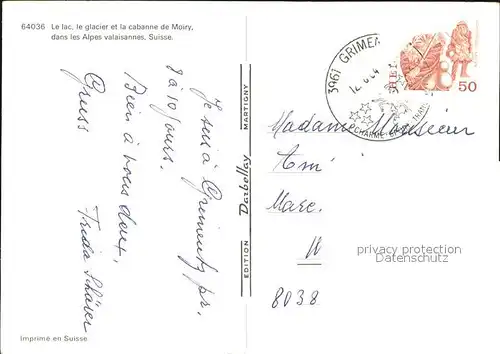 64036 Le lac, le glacier et la cabanne de Moiry,
dans les Alpes valaisannes, Suisse.
Je suis à Grimentz pr.
8 à 10 jours.
Bien à vous deux,
Gruss
Imprimé en Suisse
EDITION Darbellay MARTIGNY
3961 GRIMEN
HEL
50
CHARME
Madame Monsieur
Marc.
8038
privacy protection
Datenschutz